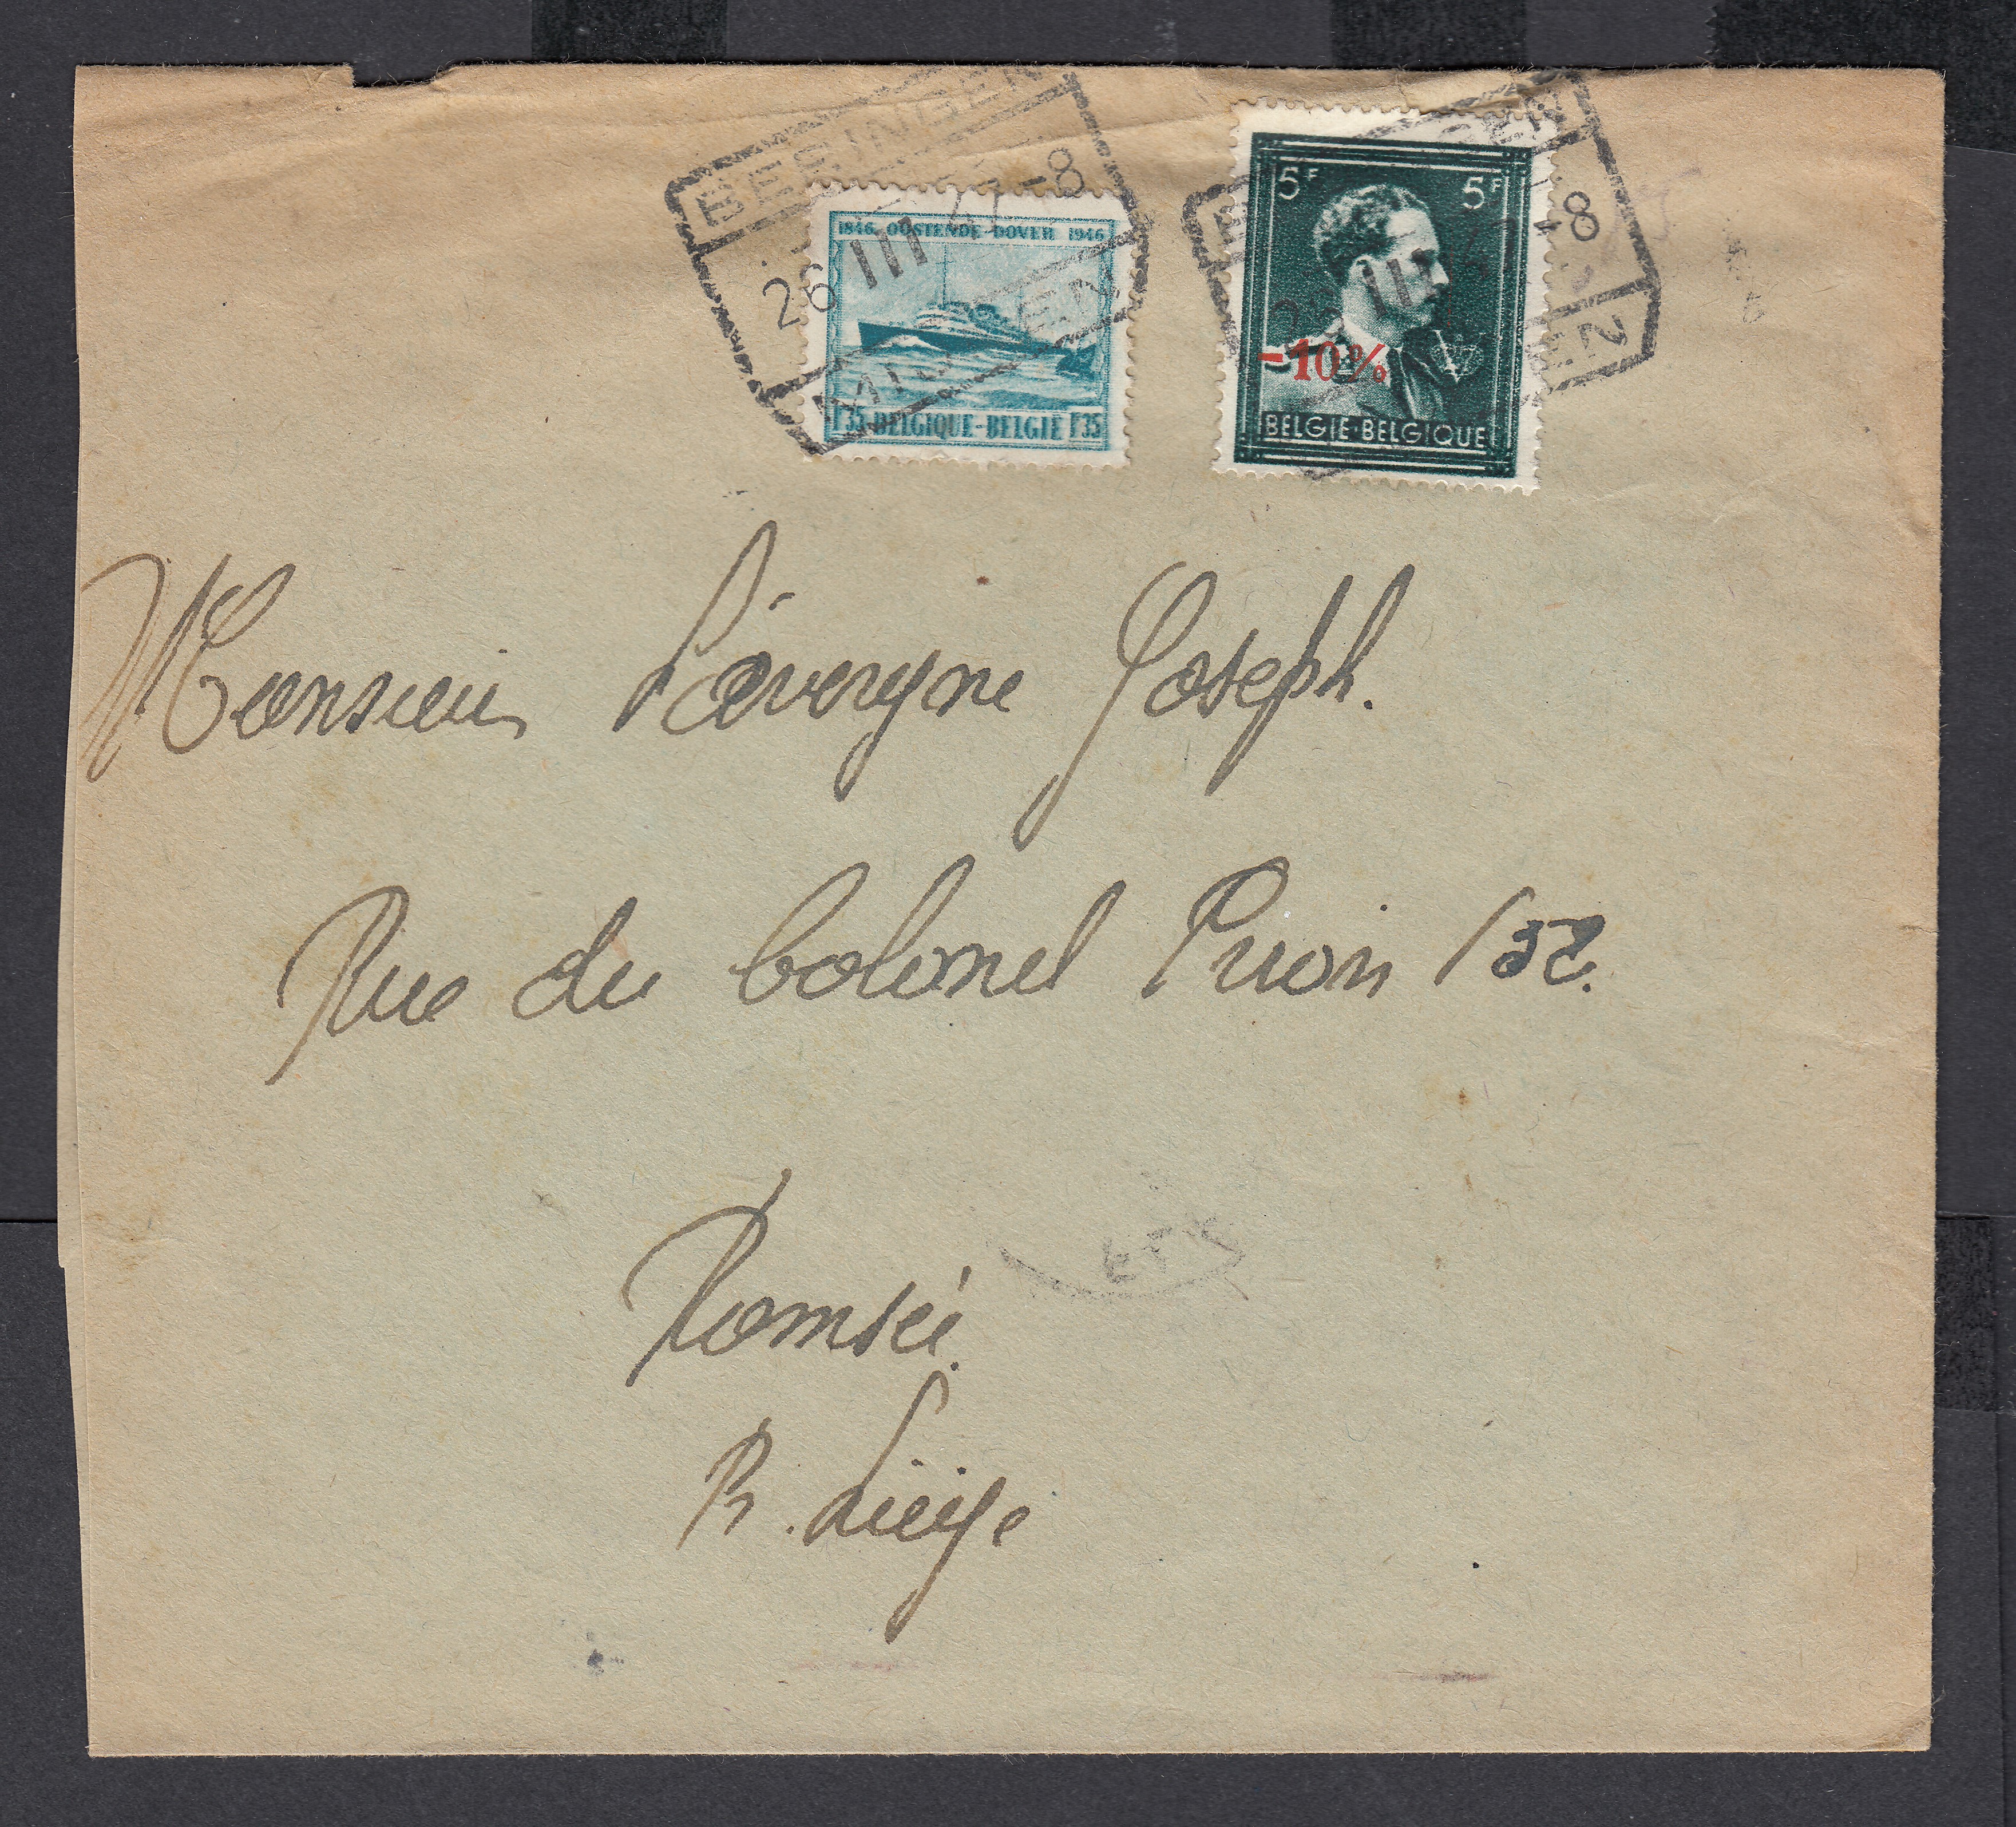 BERINGEN
26 III 47-8
MIJNEN
1846 OOSTENDE-DOVER 1946
1F35 BELGIQUE-BELGIE 1F35
5F 5F
-10%
BELGIE-BELGIQUE
-8
Monsieur Lavergne Joseph.
Rue du Colonel Piron 132.
Romsée
Pr. Liège